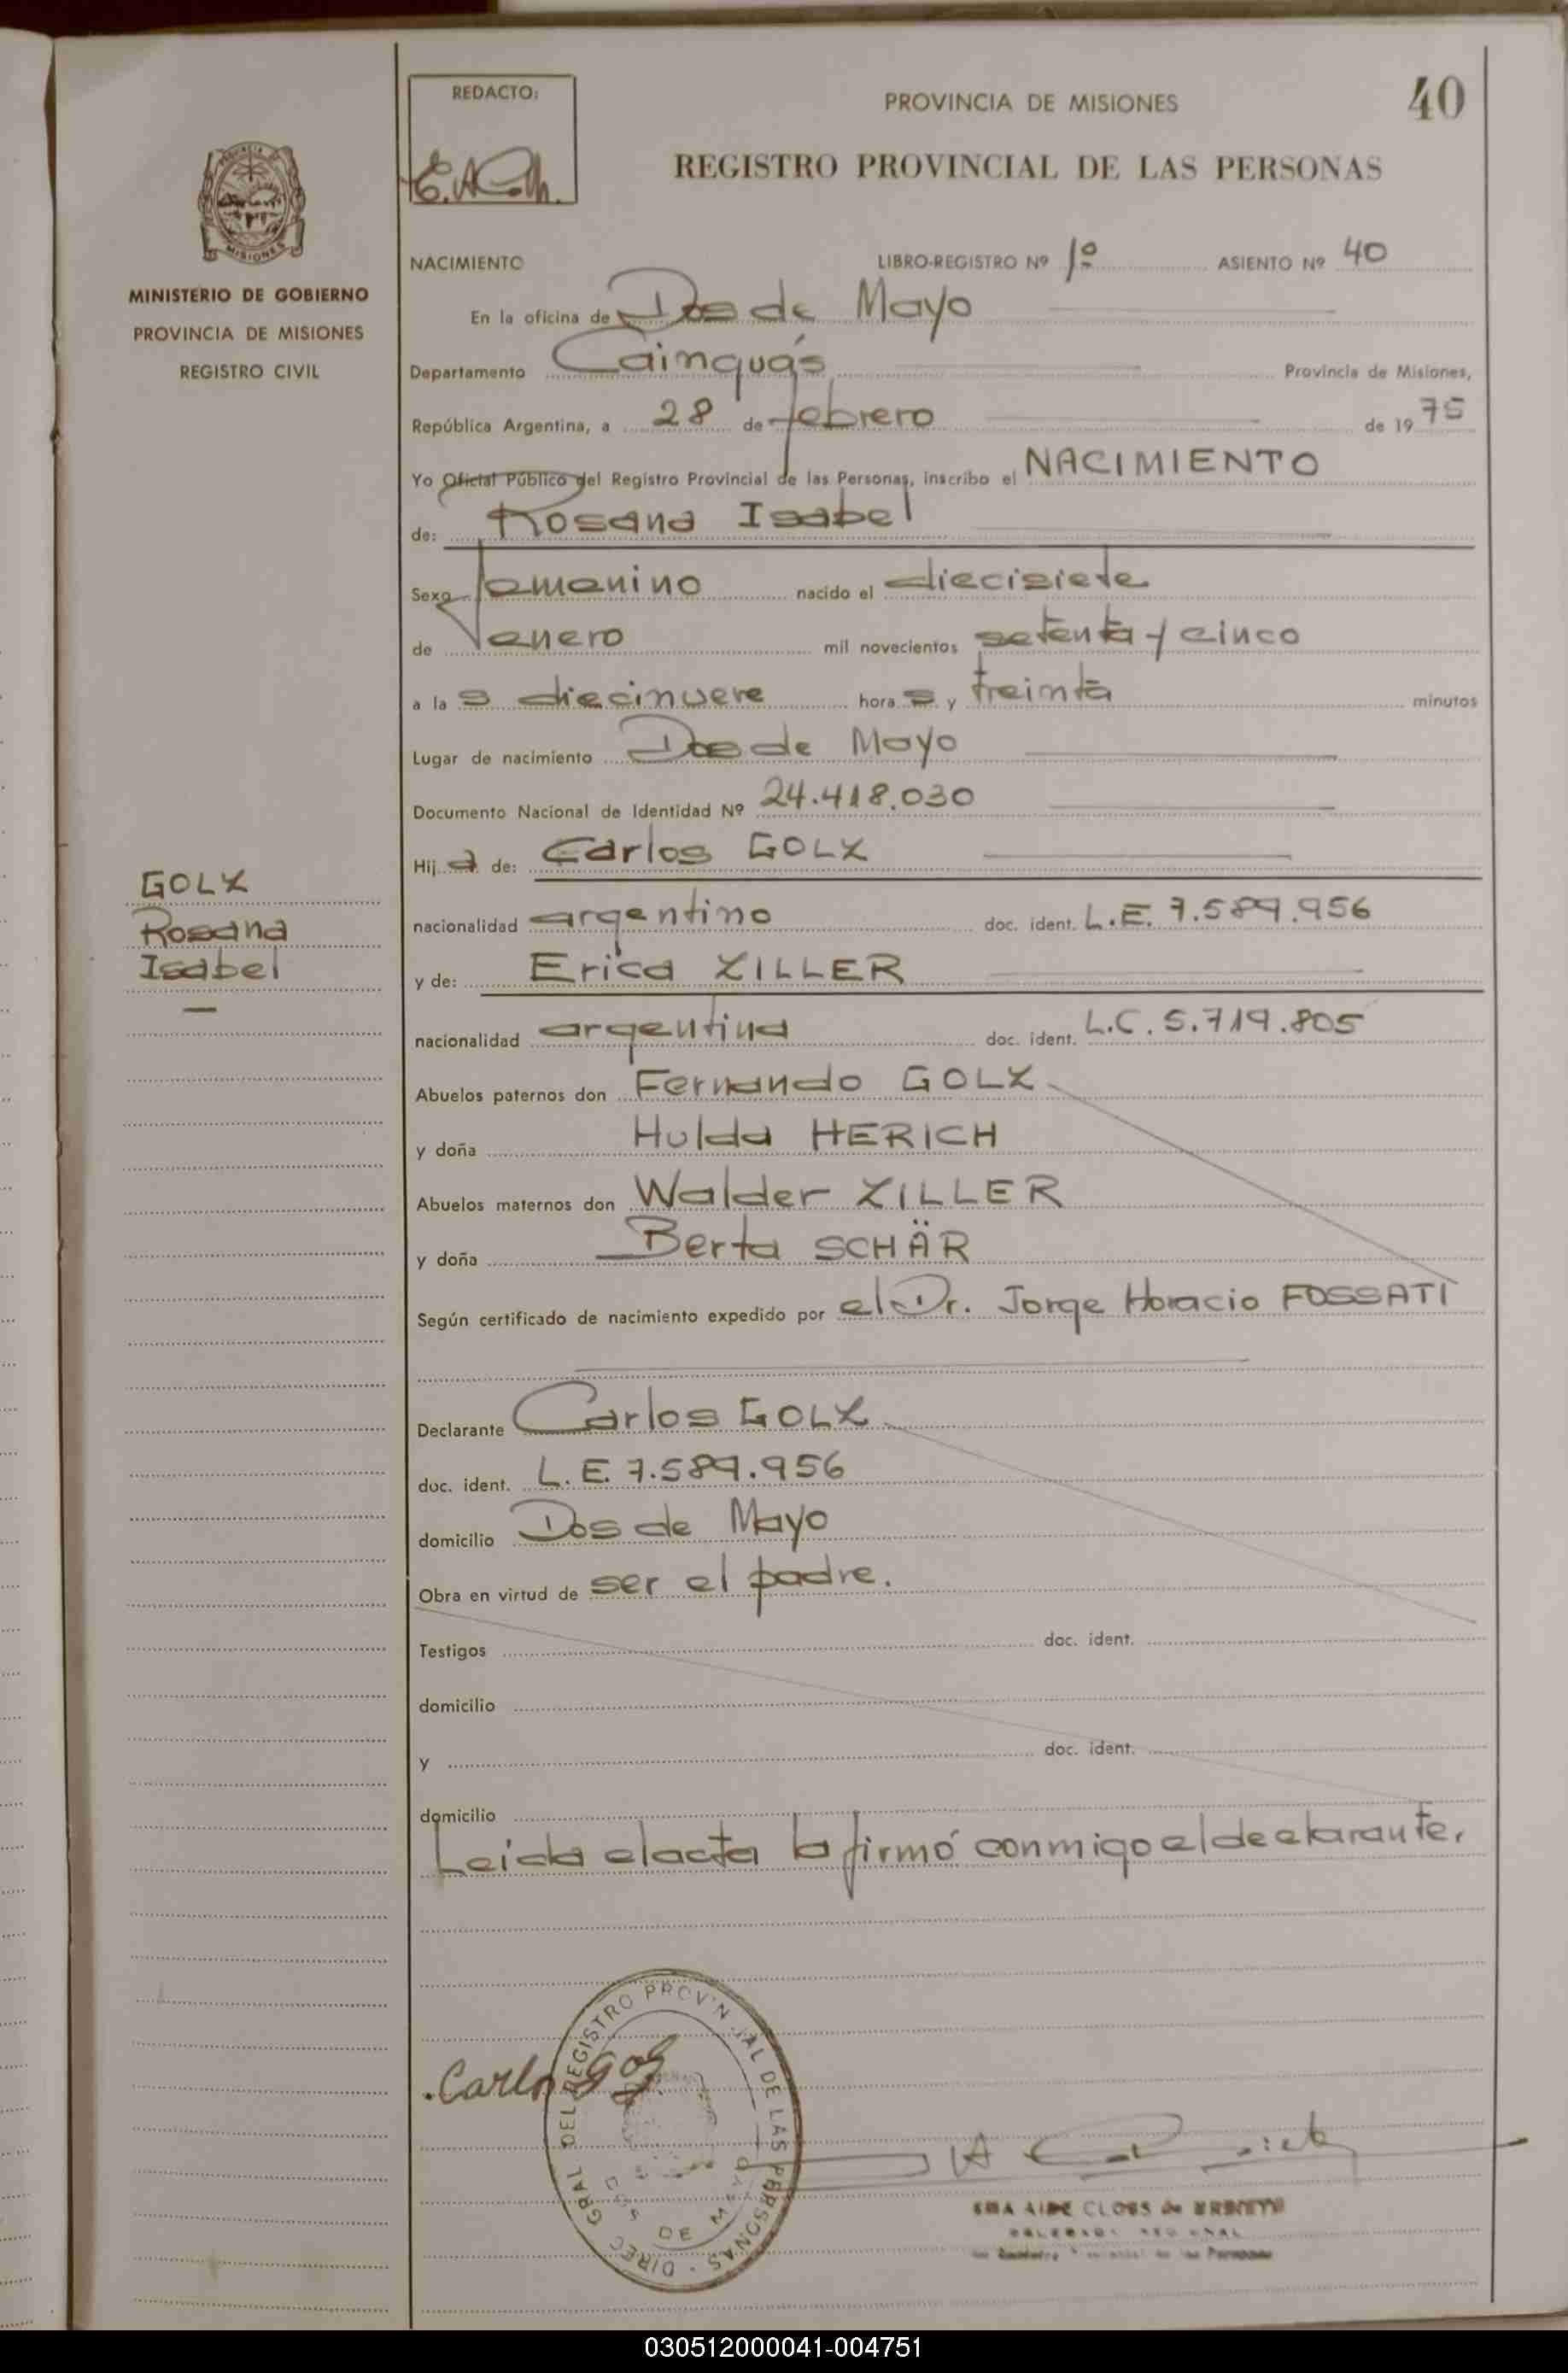 REDACTO:
PROVINCIA DE MISIONES
40
REGISTRO PROVINCIAL DE LAS PERSONAS
MISIONES
MINISTERIO DE GOBIERNO
PROVINCIA DE MISIONES
REGISTRO CIVIL
NACIMIENTO LIBRO-REGISTRO Nº 1º ASIENTO Nº 40
En la oficina de Dos de Mayo
Departamento Cainguás Provincia de Misiones,
República Argentina, a 28 de febrero de 1975
Yo Oficial Público del Registro Provincial de las Personas, inscribo el NACIMIENTO
de: Rosana Isabel
Sexo femenino nacido el diecisiete
de enero mil novecientos setenta y cinco
a las diecinueve horas y treinta minutos
Lugar de nacimiento Dos de Mayo
Documento Nacional de Identidad Nº 24.418.030
Hija de: Carlos GOLZ
GOLZ
Rosana
Isabel
nacionalidad argentino doc. ident. L.E. 7.589.956
y de: Erica ZILLER
nacionalidad argentina doc. ident. L.C. 5.719.805
Abuelos paternos don Fernando GOLZ
y doña Hulda HERICH
Abuelos maternos don Walder ZILLER
y doña Berta SCHÄR
Según certificado de nacimiento expedido por el Dr. Jorge Horacio FOSSATI
Declarante Carlos GOLZ
doc. ident. L.E. 7.589.956
domicilio Dos de Mayo
Obra en virtud de ser el padre.
Testigos doc. ident.
domicilio
y doc. ident.
domicilio
Leida el acta la firmó conmigo el declarante.
DIREC. GRAL DEL REGISTRO PROVINCIAL DE LAS PERSONAS
DOS DE MAYO
Carlos Golz
AIDE CLOSS de
030512000041-004751